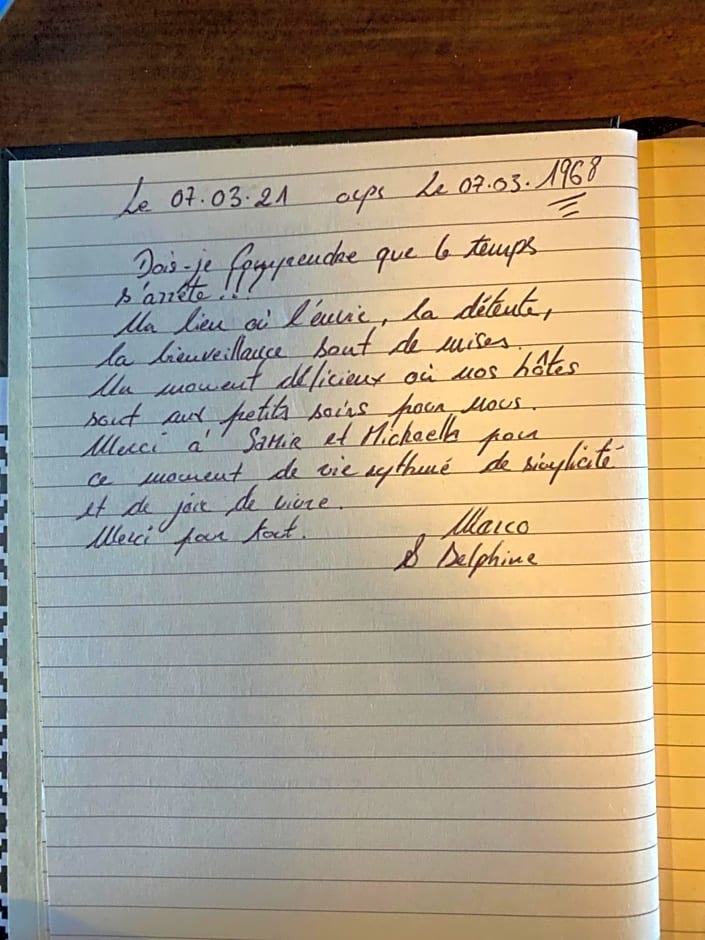 Le 07.03.21 oups Le 07.03.1968
Dois-je comprendre que le temps
s'arrête!!!
Un lieu où l'envie, la détente,
la bienveillance sont de mises.
Un moment délicieux où nos hôtes
sont aux petits soins pour nous.
Merci à Samir et Michaella pour
ce moment de vie rythmé de simplicité
et de joie de vivre.
Merci pour tout. Marco
& Delphine